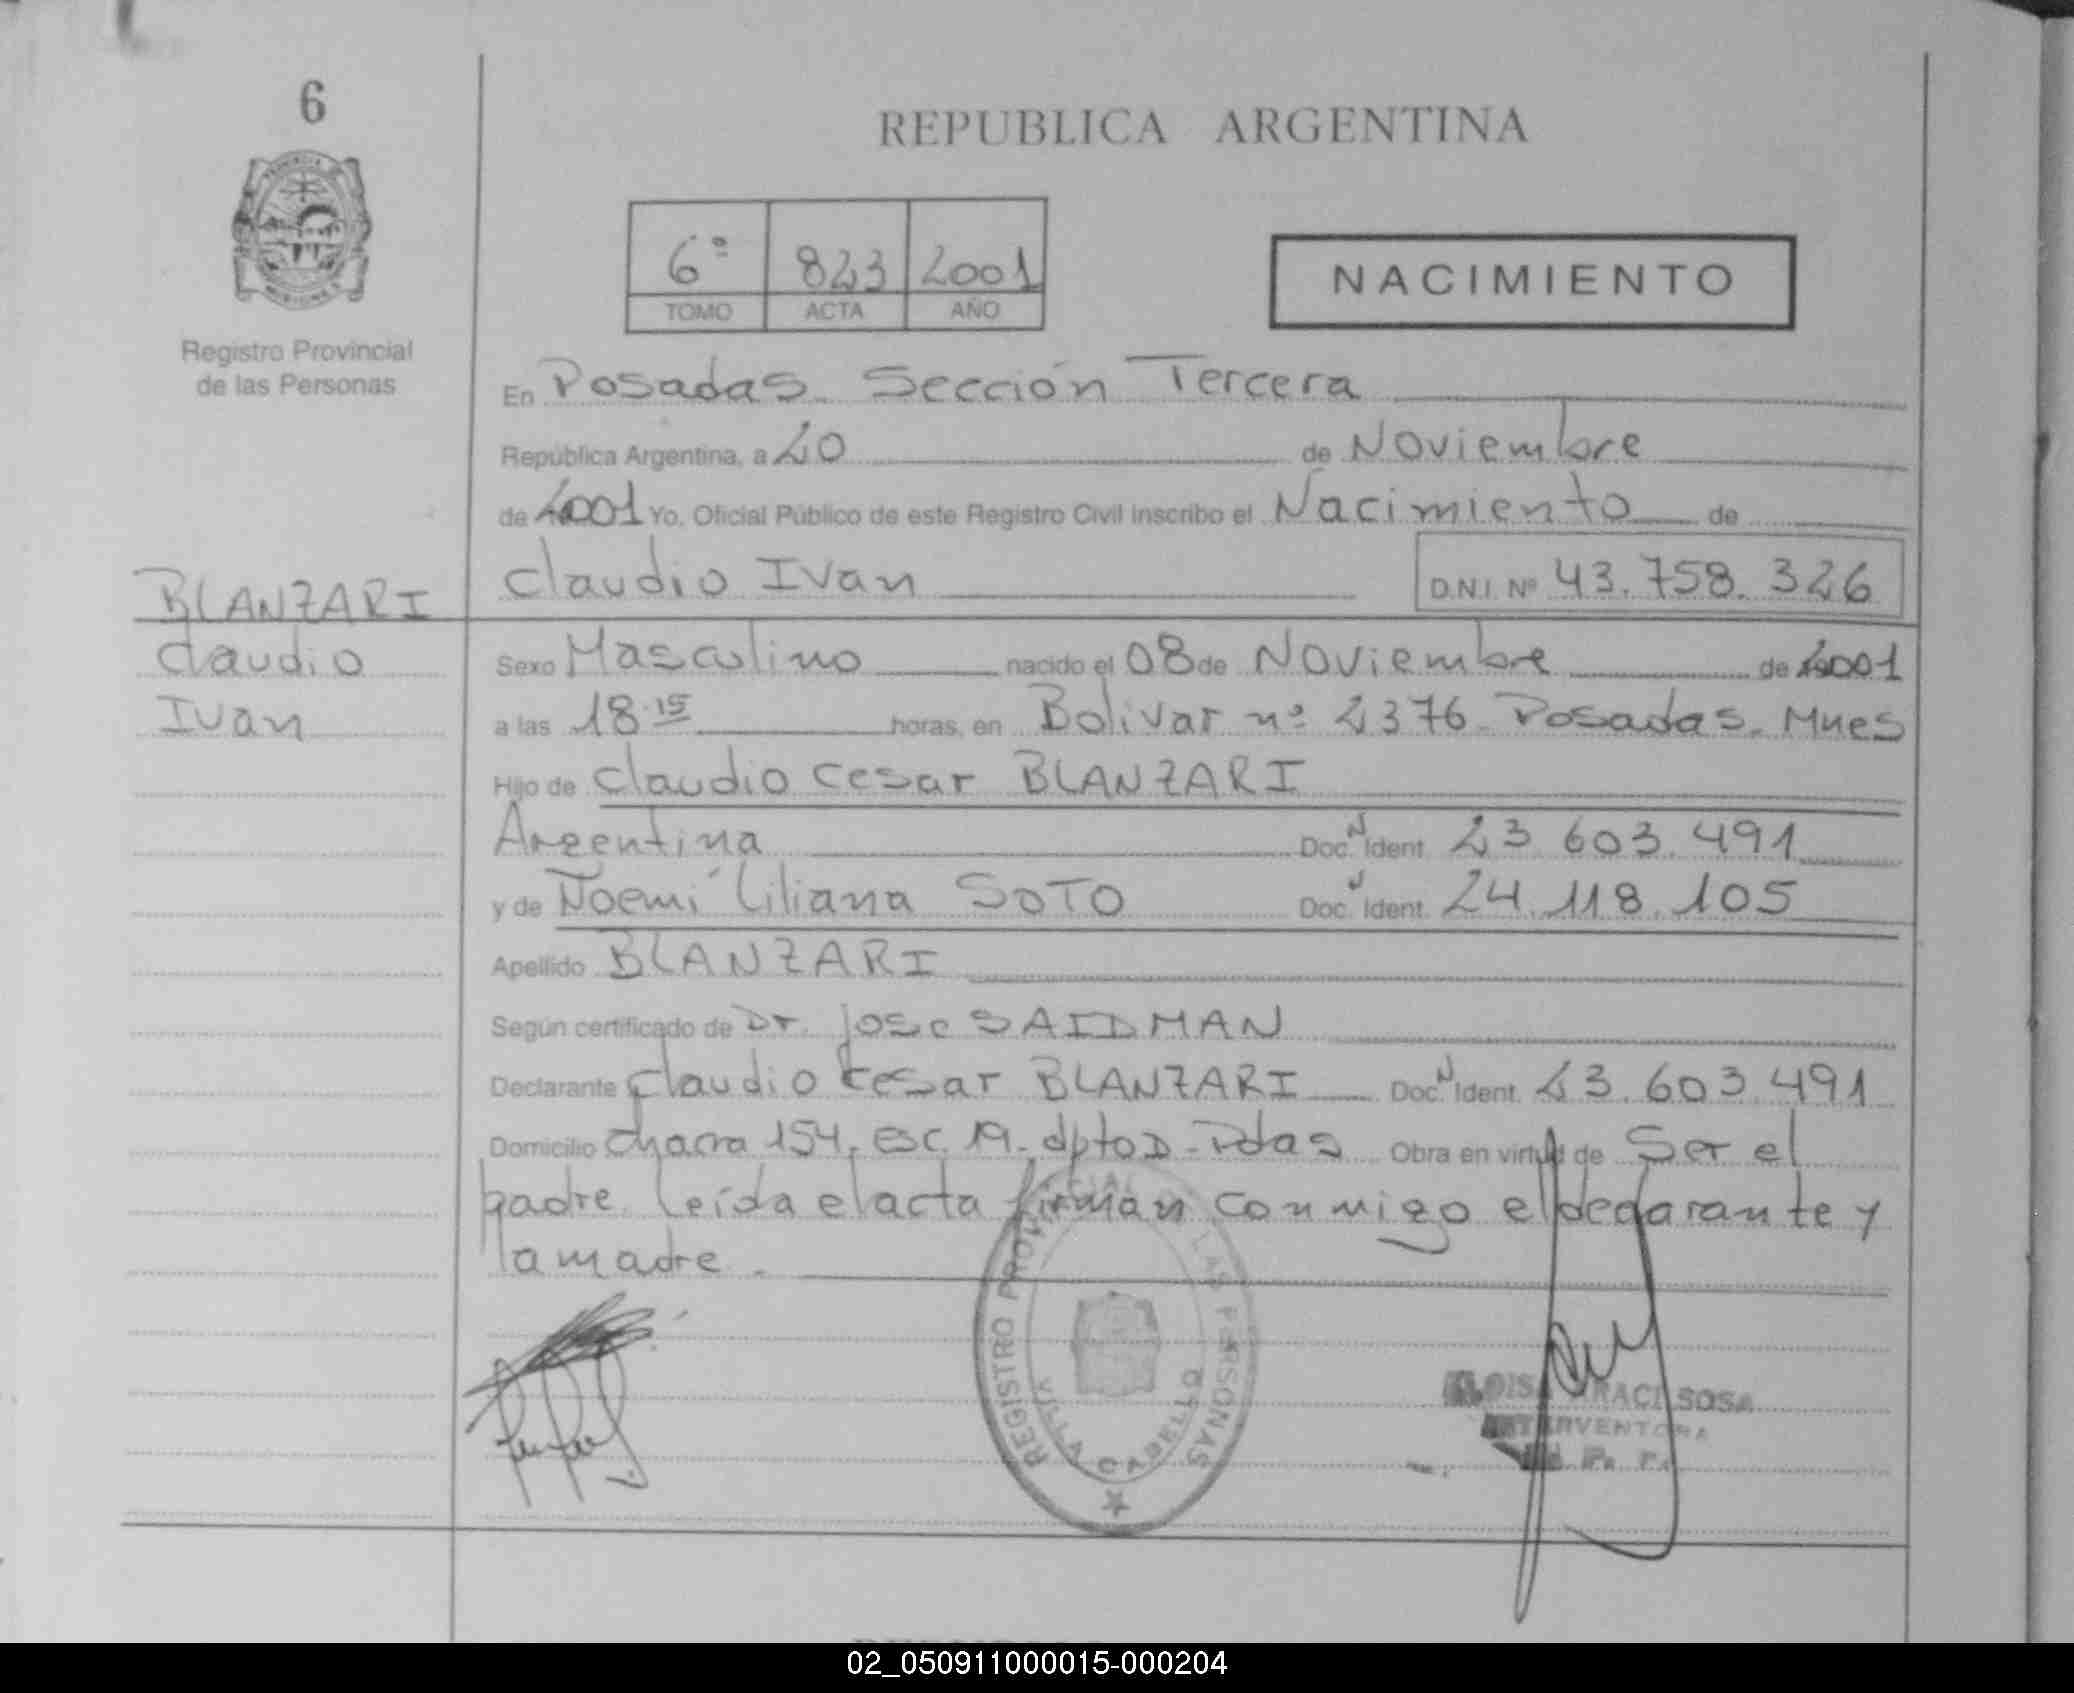 6
REPUBLICA ARGENTINA
PROVINCIA
MISIONES
Registro Provincial
de las Personas
6º 823 2001
TOMO ACTA AÑO
NACIMIENTO
En Posadas. Sección Tercera
República Argentina, a 20 de Noviembre
de 2001 Yo, Oficial Público de este Registro Civil inscribo el Nacimiento de
BLANZARI
Claudio
Ivan
Claudio Ivan D.N.I. Nº 43.758.326
Sexo Masculino nacido el 08 de Noviembre de 2001
a las 18.15 horas, en Bolivar nº 2376. Posadas. Mnes
Hijo de Claudio Cesar BLANZARI
Argentina Doc. N Ident. 23.603.491
y de Noemí Liliana SOTO Doc. N Ident. 24.118.105
Apellido BLANZARI
Según certificado de Dr. Jose SAIDMAN
Declarante Claudio Cesar BLANZARI Doc. N Ident. 23.603.491
Domicilio Chacra 154. esc. 19. dpto D - Pdas Obra en virtud de Ser el
padre. Leída el acta firman conmigo el declarante y
la madre.
REGISTRO PROVINCIAL DE LAS PERSONAS
VILLA CABELLO
SOSA
INTERVENTORA
02_050911000015-000204